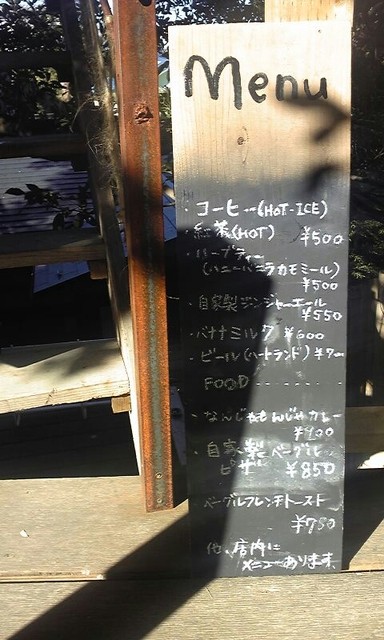 Menu
・コーヒー(HOT-ICE)
紅茶(HOT) ¥500
・ハーブティー
(ハニーバニラカモミール)
¥500
・自家製ジンジャーエール
¥550
・バナナミルク ¥600
・ビール(ハートランド)
FOOD
・なんじゃもんじゃカレー
・自家製ベーグル
ピザ ¥850
ベーグルフレンチトースト
¥750
他、店内に
メニューあります